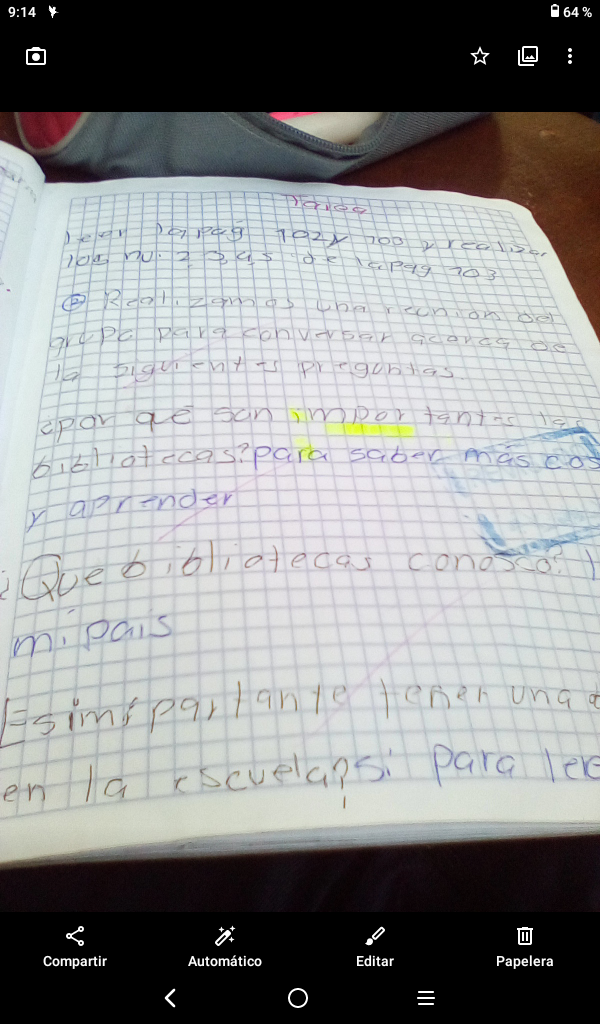 9:14
64 %
Tarea
leer la pag 102 y 103 y realizar
los nu. 2, 3, 4 5 de la pag 103
② Realizamos una reunion de
grupo para conversar acerca de
la siguientes preguntas.
¿por qué son importantes la
bibliotecas? para saber más cos
y aprender
¿Que bibliotecas conosco?
mi pais
Es importante tener una
en la escuela? si para lee
Compartir
Automático
Editar
Papelera